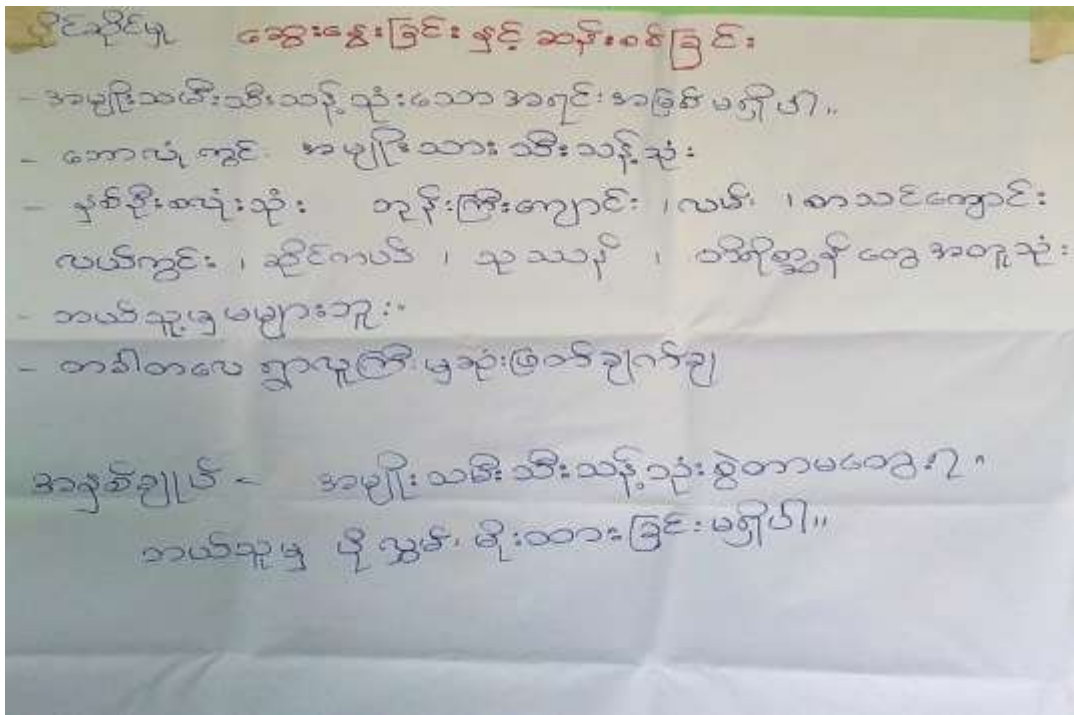 ပိုင်ဆိုင်မှု ဆွေးနွေးခြင်း နှင့် ဆန်းစစ်ခြင်း
- အမျိုးသမီးသီးသန့် သုံးသော အရင်းအမြစ် မရှိပါ။
- ဘောလုံးကွင်း အမျိုးသားသီးသန့်သုံး
- နှစ်ဦးစလုံးသုံး ဘုန်းကြီးကျောင်း ၊ လမ်း ၊ စာသင်ကျောင်း
လယ်ကွင်း ၊ ဆိုင်ကယ် ၊ သုဿာန် ၊ ပဒိုတ္တန် တွေ အတူသုံး
- ဘယ်သူ့မှ မများဘူး။
- တခါတလေ ရွာလူကြီးမှ ဆုံးဖြတ်ချက်ချ
အနှစ်ချုပ် - အမျိုးသမီးသီးသန့်သုံးစွဲတာမတွေ့ရ။
ဘယ်သူမှ ပို လွှမ်းမိုးထားခြင်း မရှိပါ။